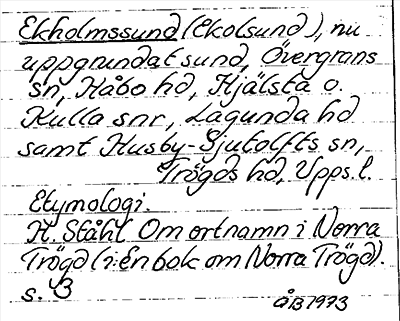 Ekholmssund (Ekolsund), nu
uppgrundat sund, Övergrans
sn, Håbo hd, Hjälsta o.
Kulla snr, Lagunda hd
samt Husby-Sjutolfts sn,
Trögds hd, Upps. l.
Etymologi.
H. Ståhl Om ortnamn i Norra
Trögd (i: En bok om Norra Trögd).
s. 3
ÅB 1973